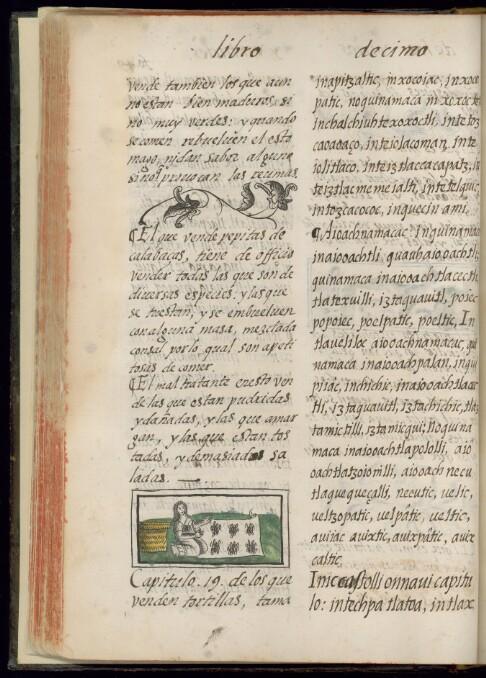 libro decimo
vende tambien los que aun
no estan bien maduros, si
no muy verdes: y quando
se comen rebuelven el esto
mago, ni dan sabor alguno
sino provocan las reumas
¶ El que vende pepitas de
calabaças, tiene de officio
vender todas las que son de
diversas especies: y las que
se tuestan, y se embuelven
con alguna masa, mezclada
con sal por lo qual son apeti
tosas de comer.
¶ El mal tratante en esto ven
de las que estan pudridas
y dañadas, y las que amar
gan, y las que estan tos
tadas, y demasiado sa
ladas.
Capitulo. 19. de los que
venden tortillas, tama
inapitzaltic, in xocoiac, in xoco
patic, no quinamaca in xoxoc
in chalchiuhtexoxoctli, inte toz
cacacaço, inteiclacoman, inte
iolitlaco, inteiztlaccacapatz, in
teiztlacmemeialti, intetelquic,
intozcacococ, inquecin ami.
¶ Aioachnamacac: inquinamaca
inaiooachtli, quauhaiooachtli
quinamaca inaiooachtlacectli
tlatexvilli, iztaguavitl, poiec
popoiec, poelpatic, poeltic, In
tlaveliloc aiooachnamacac, qui
namaca inaiooachpalan, inqui
piiac, inchichic, inaiooachtlaca
tli, iztaguavitl, iztachichic, tlaz
tamictilli, iztamicqui, Noquina
maca inaiooachtlapololli, aio
oachtlatzoionilli, aiooach necu
tlaqueçalli, necutic, velic,
veltzopatic, velpatic, veltic,
aviiac avixtic, avixpatic, avix
caltic,
Inic caxtolli onnavi capitu
lo: intechpa tlatoa, in tlax